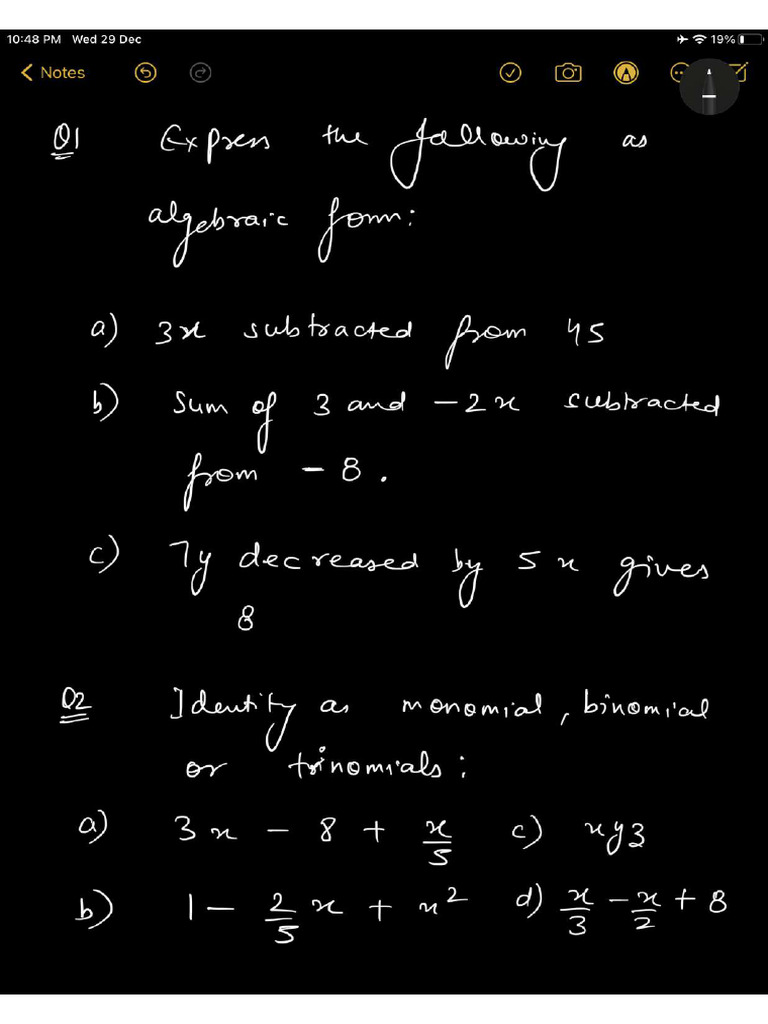 10:48 PM Wed 29 Dec 19%
Notes
Q1 Express the following as
algebraic form:
a) 3x subtracted from 45
b) Sum of 3 and -2x subtracted
from -8.
c) 7y decreased by 5x gives
8
Q2 Identity as monomial, binomial
or trinomials:
a) 3x - 8 + x/5 c) xyz
b) 1 - 2/5 x + x² d) x/3 - x/2 + 8